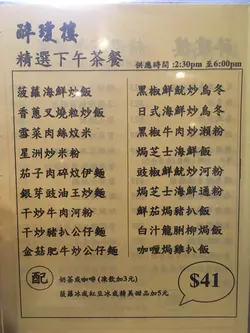 醉瓊樓
精選下午茶餐
供應時間:2:30pm 至6:00pm
菠蘿海鮮炒飯
香蔥叉燒粒炒飯
雪菜肉絲炆米
星洲炒米粉
茄子肉碎炆伊麵
銀芽豉油王炒麵
干炒牛肉河粉
干炒豬扒公仔麵
金菇肥牛炒公仔麵
黑椒鮮魷炒烏冬
日式海鮮炒烏冬
黑椒牛肉炒瀨粉
焗芝士海鮮飯
豉椒鮮魷炒河粉
焗芝士海鮮通粉
鮮茄焗豬扒飯
白汁龍脷柳焗飯
咖喱焗雞扒飯
配
奶茶或咖啡(凍飲加3元)
菠蘿冰或紅豆冰或精美甜品加5元
$41